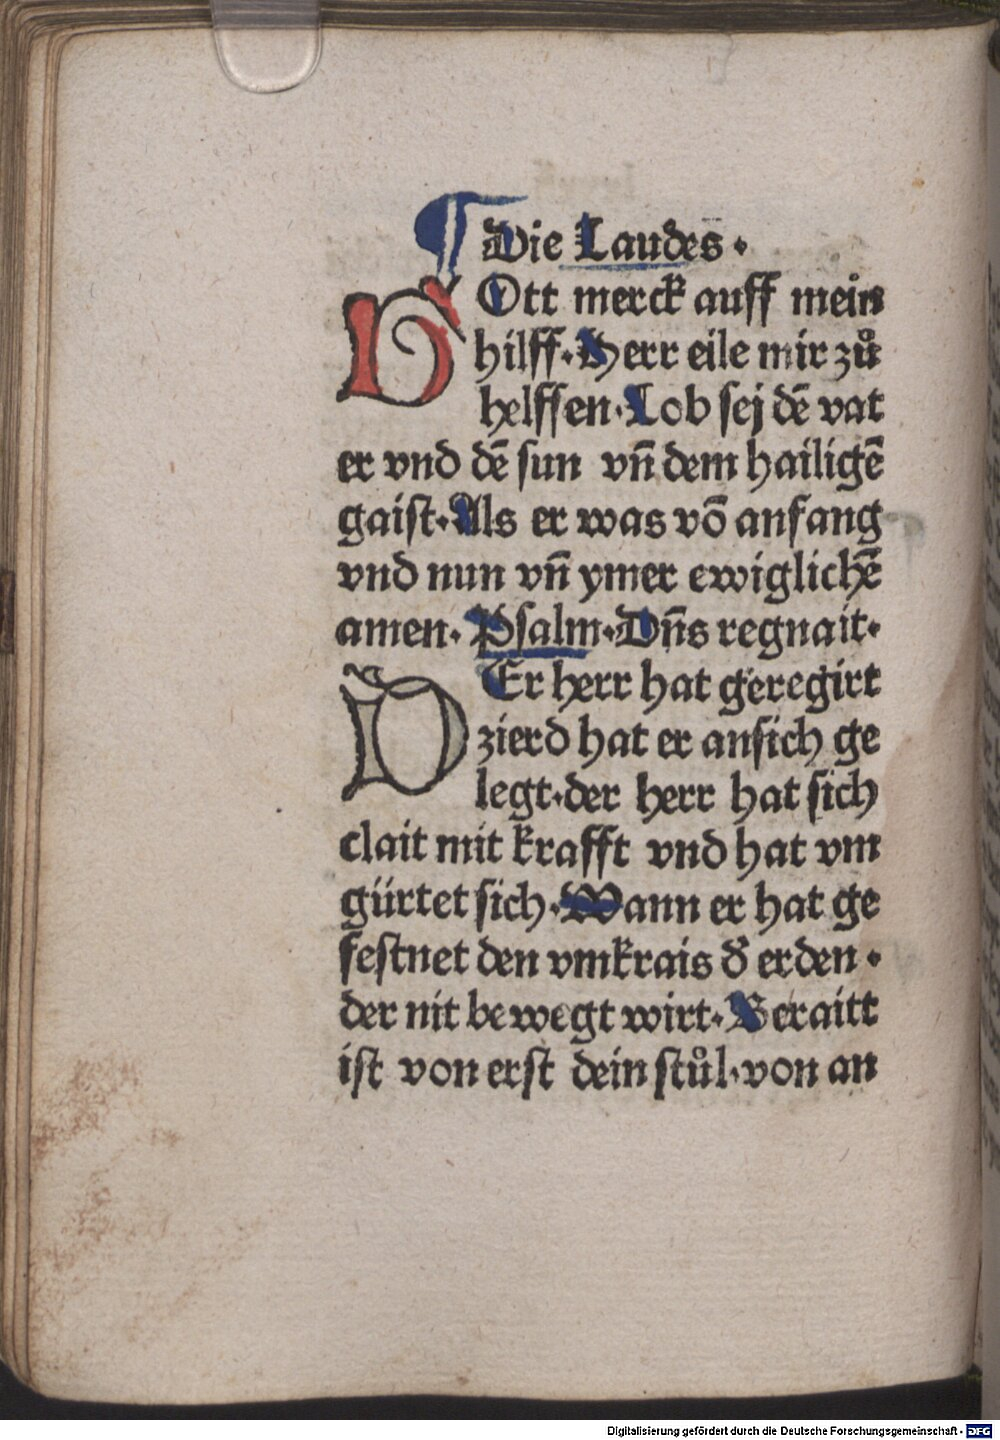 ¶ Die Laudes ·
GOtt merck auff mein
hilff· Herr eile mir zů
helffen· Lob sej dē vat
er vnd dē sun vn̄ dem hailigē
gaist· Als er was vō anfang
vnd nun vn̄ ymer ewiglichē
amen· Psalm· Dn̄s regnait·
DEr herr hat geregirt
zierd hat er ansich ge
legt· der herr hat sich
clait mit krafft vnd hat vm
gürtet sich· Wann er hat ge
festnet den vmkrais d̓ erden ·
der nit bewegt wirt· Beraitt
ist von erst dein stůl· von an
Digitalisierung gefördert durch die Deutsche Forschungsgemeinschaft - DFG